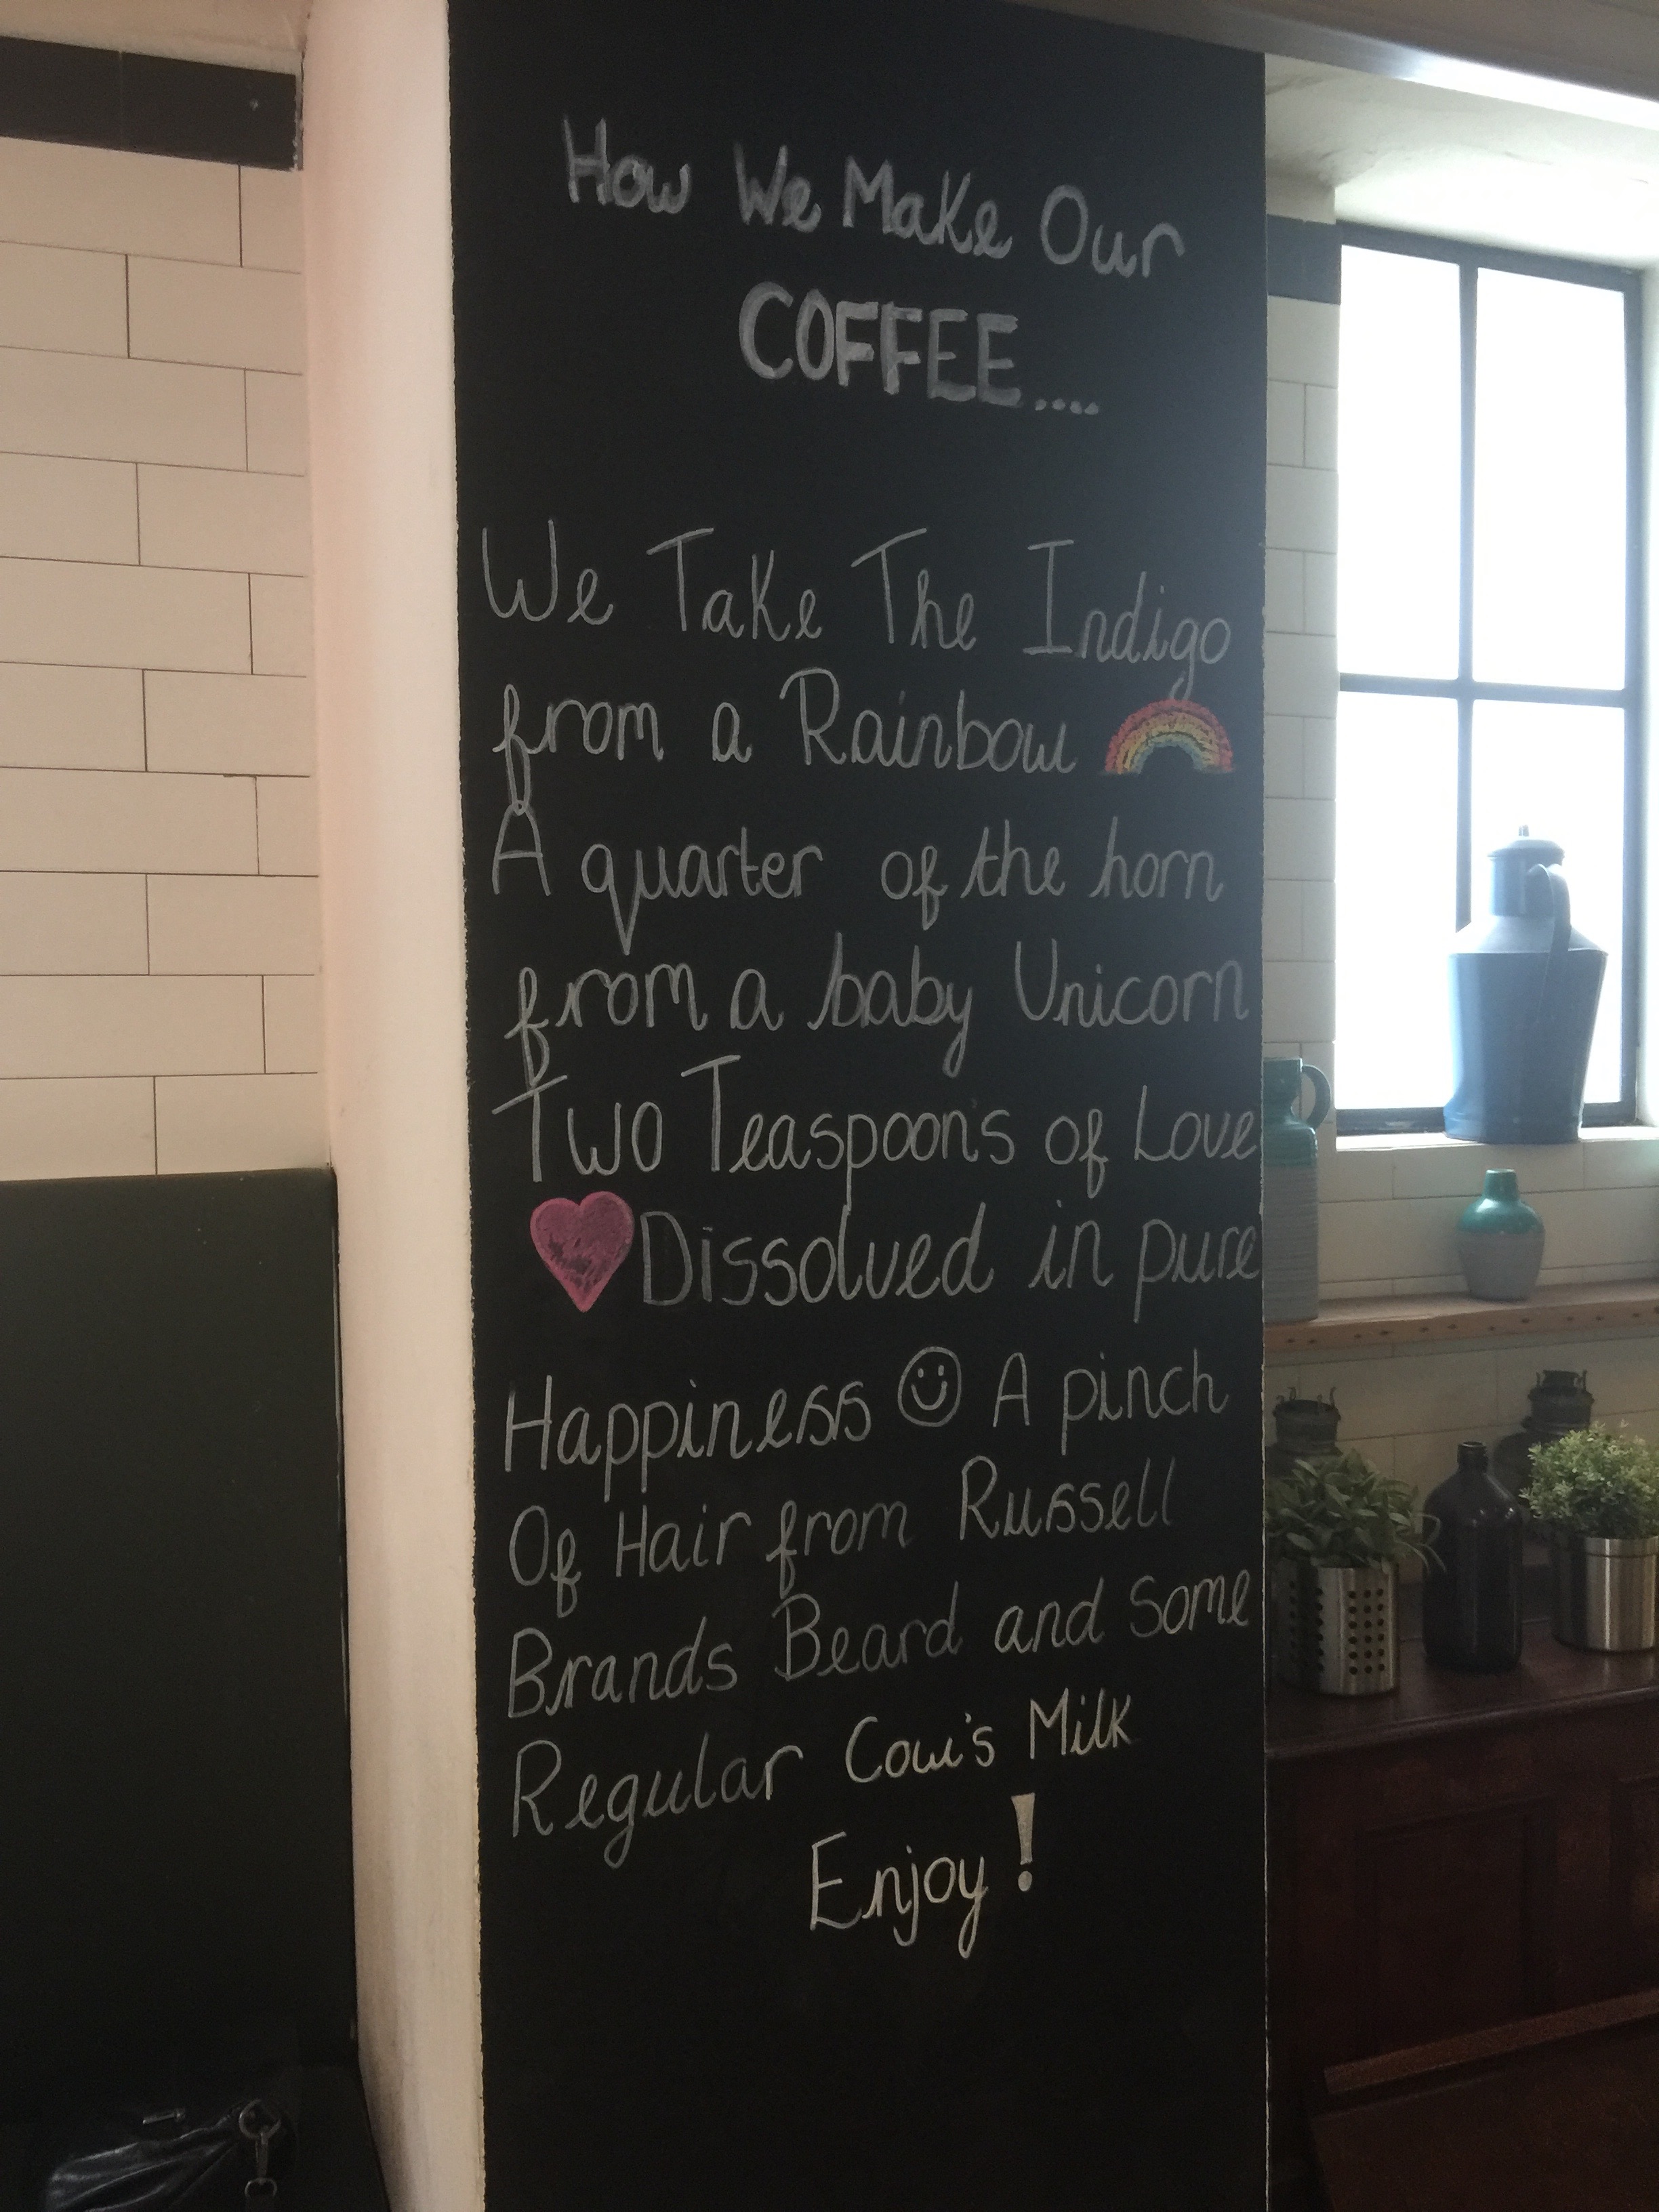 How We Make Our
COFFEE....
We Take The Indigo
from a Rainbow
A quarter of the horn
from a baby Unicorn
Two Teaspoon's of Love
Dissolved in pure
Happiness A pinch
Of Hair from Russell
Brands Beard and Some
Regular Cow's Milk
Enjoy!